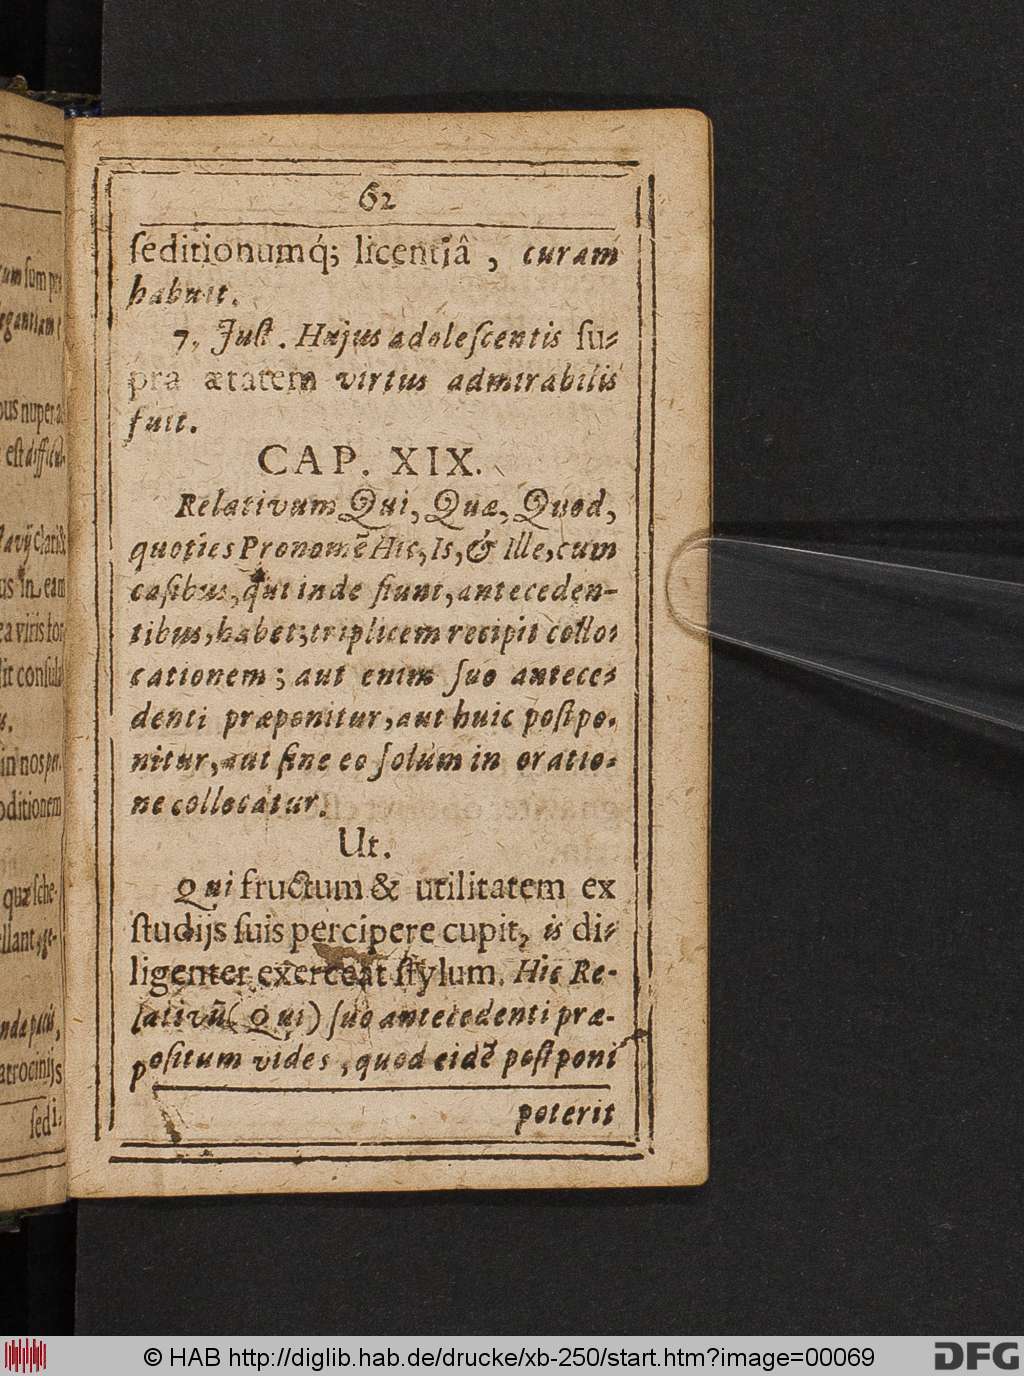 62
seditionumq́; licentiâ, curam
habuit.
7. Just. Hujus adolescentis su-
pra ætatem virtus admirabilis
fuit.
CAP. XIX.
Relativum Qui, Quæ, Quod,
quoties Pronomẽ Hic, Is, & Ille, cum
casibus, qui inde fiunt, anteceden-
tibus, habet; triplicem recipit collo-
cationem; aut enim suo antece-
denti præponitur, aut huic postpo-
nitur, aut sine eo solùm in oratio-
ne collocatur.
Ut.
Qui fructum & utilitatem ex
studijs suis percipere cupit, is di-
ligenter exerceat stylum. Hic Re-
lativũ (Qui) suo antecedenti præ-
positum vides, quod eidẽ postponi
poterit
sedi-
© HAB http://diglib.hab.de/drucke/xb-250/start.htm?image=00069
DFG